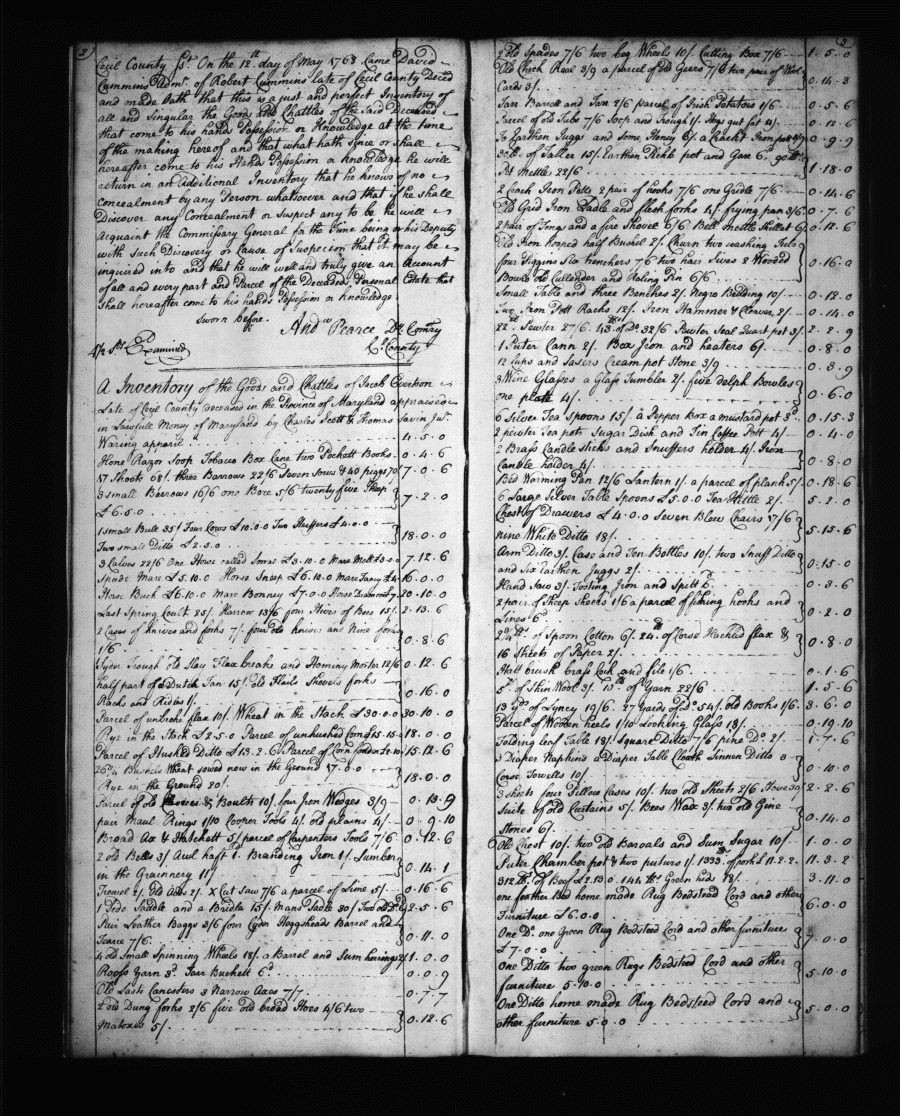 2
Cecil County Sst. On the 12th day of May 1763 Came David
Cummins Admr. of Robert Cummins late of Cecil County Deced
and made Oath that this is a just and perfect Inventory of
all and Singular the Goods and Chattles of the said Deceased
that come to his hands Possession or Knowledge at the time
of the making hereof and that what hath since or shall
hereafter come to his Hands Possession or knowledge he will
return in an Additional Inventory that he knows of no
concealment by any Person whatsoever and that if he shall
Discover any Concealment or Suspect any to be he will
Acquaint the Commissary General for the time being or his Deputy
with such Discovery or Cause of Suspecion that it may be
inquired into and that he will well and truly give an Account
of all and every part and Parcel of the Deceaseds Personal Estate that
shall hereafter come to his hands Possession or knowledge
Sworn before
Andw Pearce Dty Comry
Cl County
Examined
A Inventory of the Goods and Chattles of Jacob Everson
Late of Cecil County deceased in the Province of Maryland appraised
in Lawfull Money of Maryland by Charles Scott & Thomas Savin Junr.
Waring apparil 4.5.0
Hone Razor Soop Tobacco Box Cane two Pockett Books 0.4.6
17 Shoats 68/. three Barrows 22/6 Seven Sows & 40 piggs 70/ 7.0.6
3 small Barrows 16/6 one Bore 5/6 twenty five Sheep
£6.5.0 7.2.0
1 small Bull 35/ Four Cows £10.0.0 Two Heiffers £4.0.0
Two small Ditto £2.5.0 18.0.0
3 Calves 22/6 One Horse called Sorral £3.10.0 Mare Moll £3.0.0 7.12.6
Spade Mare £5.10.0 Horse Sneep £6.10.0 Mare Fancy £4 16.0.0
Horse Buck £6.10.0 Mare Bonney £7.0.0 Horse Diamond 7 20.10.0
Last Spring Coult 25/. Harrow 13/6 four Hives of Bees 15/. 2.13.6
2 Cases of knives and forks 7/. four old knives and Nine forks
1/6 0.8.6
Syder Trough old Slay Flax brake and Hominy Morter 12/6 0.12.6
half part of a Dutch Fan 15/. old Flails Shovels forks
Racks and Ridles 1/. 0.16.0
Parcel of unbroke flax 10/. Wheat in the Stack £30.0.0 30.10.0
Rye in the Stack £2.5.0 Parcel of unhusked corn £15.15 18.0.0
Parcel of Husked Ditto £13.2.6 Parcel of Corn fodder £2.10 15.12.6
26¾ Bushels Wheat sowed now in the Ground 17.0.0
Rye in the Ground 20/. 18.0.0
Parcel of old & Boults 10/. four Iron Wedges 3/9 0.13.9
pair Maul Rings 1/10 Cooper Tools 4/. old plains 4/. 0.9.10
Broad Ax & Hatchett 5/. parcel of Carpenters Tools 7/6 0.12.6
2 old Bells 3/. Awl haft 1. Branding Iron 1/. Lumber
in the Grainnery 11/. 0.14.1
Trowel 2/. Old Adds 2/. X Cut Saw 7/6 a parcel of Lime 5/. 0.16.6
Side Saddle and a Bridle 15/. Mans Sadle 30/. Two old Do. 6 2.5.6
Pair Leather Baggs 3/6 four Cyder Hoggsheads Barrel and
Tearce 7/6 0.11.0
4 old Small Spinning Wheels 18/. a Barrel and Sum herrings 2/ 1.0.0
Roofs Yarn 3d. Tarr Buckett 6d. 0.0.9
Old Casks Canesters 3 Narrow Axes 7/7 0.7.7
2 old Dung forks 2/6 five old broad Hoes 4/6 two
Matoxes 5/. 0.12.6
3
2 Old Spades 7/6 two beg Wheels 10/. Cutting Box 7/6 1.5.0
Old Chick Real 3/9 a parcel of old Geers 7/6 two pair of Wool
Cards 3/. 0.14.3
Tarr Barrell and Tarr 2/6 parcel of Irish Potatoes 1/6 0.5.6
Parcel of old Tubs 7/6 Soop and Trough 1/. Hogs gut fat 4/. 0.12.6
To Earthen Juggs and Some Honey 6/. a Crackt Iron pot 3/9 0.9.9
30lb. of Taller 15/. Earthen Pickle pot and Gax 6. 90lb.
Pot Mettle 22/6 1.18.0
2 Crack Iron Potts 2 pair of hooks 7/6 one Gridle 7/6 0.14.6
Old Grid Iron Ladle and flesh forks 4/. frying pan 3/6 0.7.6
2 pair of Tongs and a fire Shovel 6/6 Bell mettle Skillet 6/. 0.12.6
Old Iron hooped half Bushel 2/. Churn two washing Tubs
four Piggins Six trenchers 7/6 two hair Sives 2 Wooded
Bowls old Cullender and Roling Pin 6/6 0.16.0
Small Table and three Benches 2/. Negro Bedding 10/. 0.12.0
Two Iron Pott Racks 12/. Iron Hammer & Cleaver 2/. 0.14.0
22lb. Pewter 27/6. 43lb of Do. 32/6 Pewter Seal Quart pot 3/. 2.2.9
1 Puter Cann 2/. Box Iron and heaters 6/. 0.8.0
12 Cups and Sasers Cream pot Stone 3/9 0.3.9
3 Wine Glasses a Glass Tumbler 2/. five delph Bowles
one plate 4/. 0.6.0
6 Silver Tea Spoons 15/. a Pepper Box a mustard pot 3d. 0.15.3
2 pewter Tea pots Sugar Dish and Tin Coffee Pott 4/. 0.4.0
2 Brass Candlesticks and Snuffers holder 4/. Iron
Candle holder 4/. 0.8.0
Bed Warming Pan 12/6 Lantern 1/. a parcel of plank 5/. 0.18.6
6 Large Silver Table Spoons £5.0.0 Tea Kittle 2/. 5.2.0
Chest of Drawers £4.0.0 Seven Blew Chairs 17/6
nine White Ditto 18/. 5.15.6
Arm Ditto 3/. Case and Ten Bottles 10/. two Snuff Ditto
and Six Earthen Juggs 2/. 0.15.0
Hand Saw 3/. Tosting Iron and Spitt 6. 0.3.6
2 pair of Sheep Sheers 1/6 a parcel of fishing hooks and
Lines 6d. 0.2.0
of Spoon Cotton 6/. 24lb of Corse Hackled flax &
16 sheets of Paper 2/. 0.8.0
Hatt brush brass Cock and file 1/6 0.1.6
5lb of Skin Wool 3/. 15lb of Yarn 22/6 1.5.6
13 yds of Lyncy 19/6. 27 Yards of Do. 54/. old Books 1/6 3.6.0
Parcel of Wooden heels 1/10 Looking Glass 18/. 0.19.10
Folding leaf Table 18/. Square Ditto 7/6 pine Do. 2/. 1.7.6
3 Diaper Napkins a Diaper Table Clouth Linnen Ditto 3
Corse Towells 10/. 0.10.0
3 sheets four Pillow Cases 10/. two old Sheets 2/6 Stove 30/ 2.2.6
Suite of old Curtains 5/. Bees Wax 3/. two old Gine
Stones 6/. 0.14.0
Old Chest 10/. two old Baroals and Sum Sugar 10/. 1.0.0
Puter Chamber pot & two puturs 1/. 1333lb. of pork £11.2.2 11.3.2
312lb. of Beef £2.13.0. 144lb. Green hids 18/. 3.11.0
one feather Bed home made Rug Bedstead Cord and other
Furniture £6.0.0 6.0.0
One Do. one Green Rug Bedsteed Cord and other furniture
£7.0.0 7.0.0
One Ditto two green Rugs Bedsteed Cord and other
furniture 5.10.0 5.10.0
One Ditto home made Rug Bedsteed Cord and
other furniture 5.0.0 5.0.0